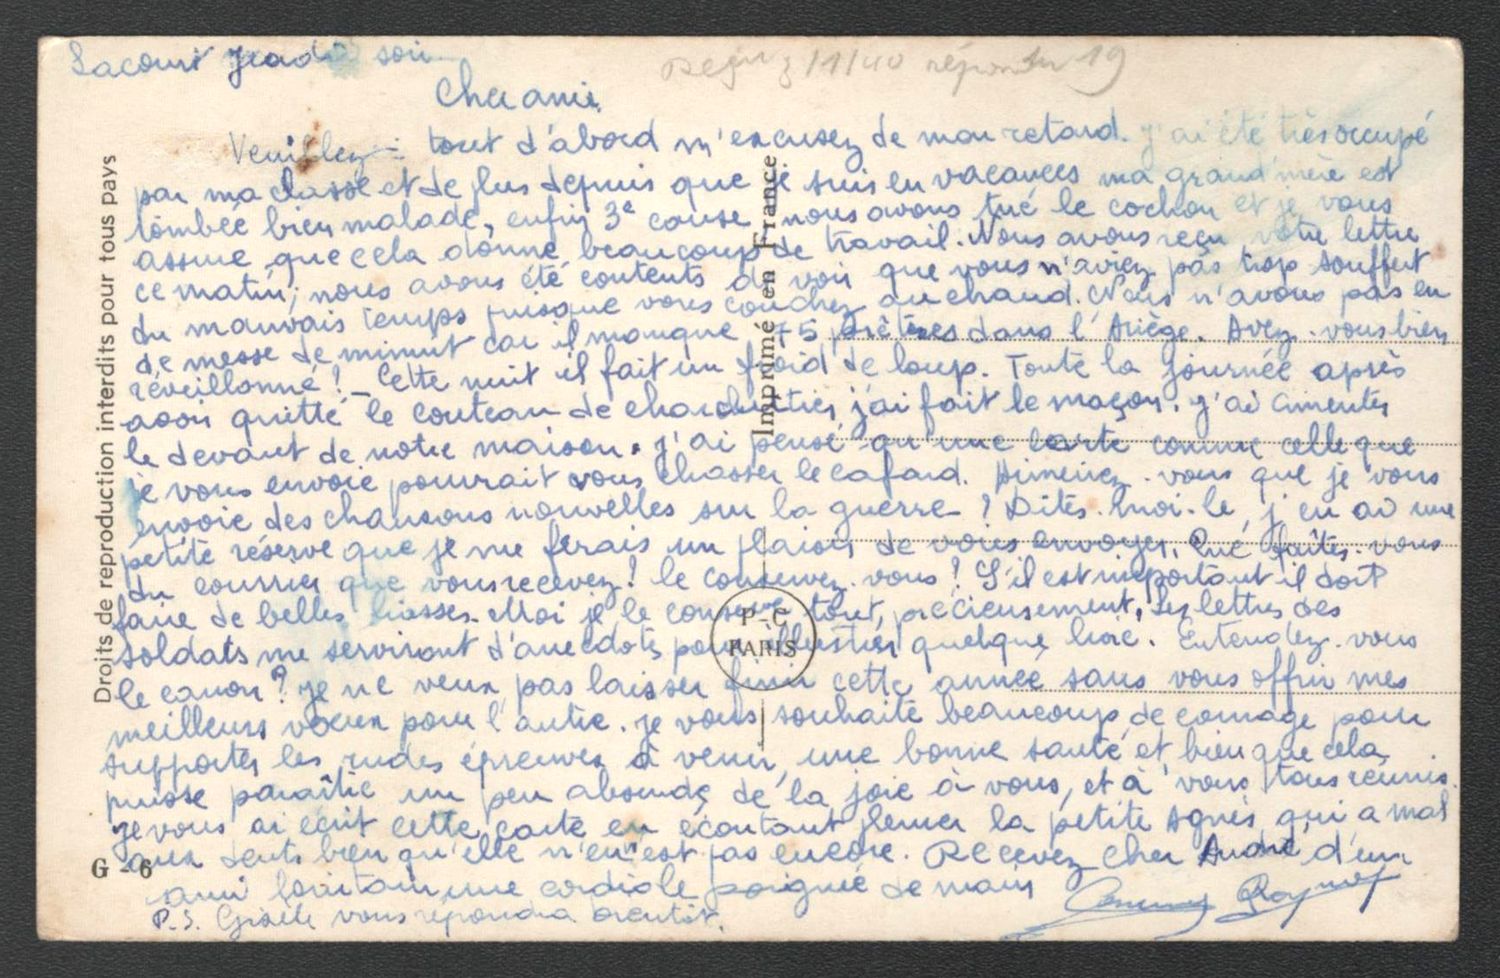 Lacourt Jeudi soir
Reçu 3/1/40 répondu 19
Cher ami
Veuillez tout d'abord m'excusez de mon retard. J'ai été très occupé
par ma classe et de plus depuis que je suis en vacances ma grand'mère est
tombée bien malade, enfin 3e cause nous avons tué le cochon et je vous
assure que cela donne beaucoup de travail. Nous avons reçu votre lettre
ce matin; nous avons été contents de voir que vous n'aviez pas trop souffert
du mauvais temps puisque vous couchez au chaud. Nous n'avons pas eu
de messe de minuit car il manque 75 prêtres dans l'Ariège. Avez-vous bien
réveillonné! _ Cette nuit il fait un froid de loup. Toute la journée après
avoir quitté le couteau de charcutier, j'ai fait le maçon. J'ai cimenter
le devant de notre maison. J'ai pensé qu'une carte comme celle que
je vous envoie pourrait vous chasser le cafard. Aimeriez-vous que je vous
envoie des chansons nouvelles sur la guerre? Dites-moi-le, j'en ai une
petite réserve que je me ferais un plaisir de vous envoyer. Que faites-vous
du courrier que vous recevez! le conservez-vous! S'il est important il doit
faire de belles liasses. Moi je le conserve tout, précieusement. Les lettres des
soldats me serviront d'anecdotes pour illustrer quelque livre. Entendez-vous
le canon? Je ne veux pas laisser finir cette année sans vous offrir mes
meilleurs vœux pour l'autre. Je vous souhaite beaucoup de courage pour
supporter les rudes épreuves à venir, une bonne santé et, bien que cela
puisse paraître un peu absurde, de la joie à vous, et à vous tous réunis.
Je vous ai écrit cette carte en écoutant pleurer la petite Agnès qui a mal
aux dents bien qu'elle n'en est pas encore. Recevez cher André d'un
ami lointain une cordiale poignée de main
P.S. Gisèle vous répondra bientôt.
Droits de reproduction interdits pour tous pays
Imprimé en France
P-C
PARIS
G - 6